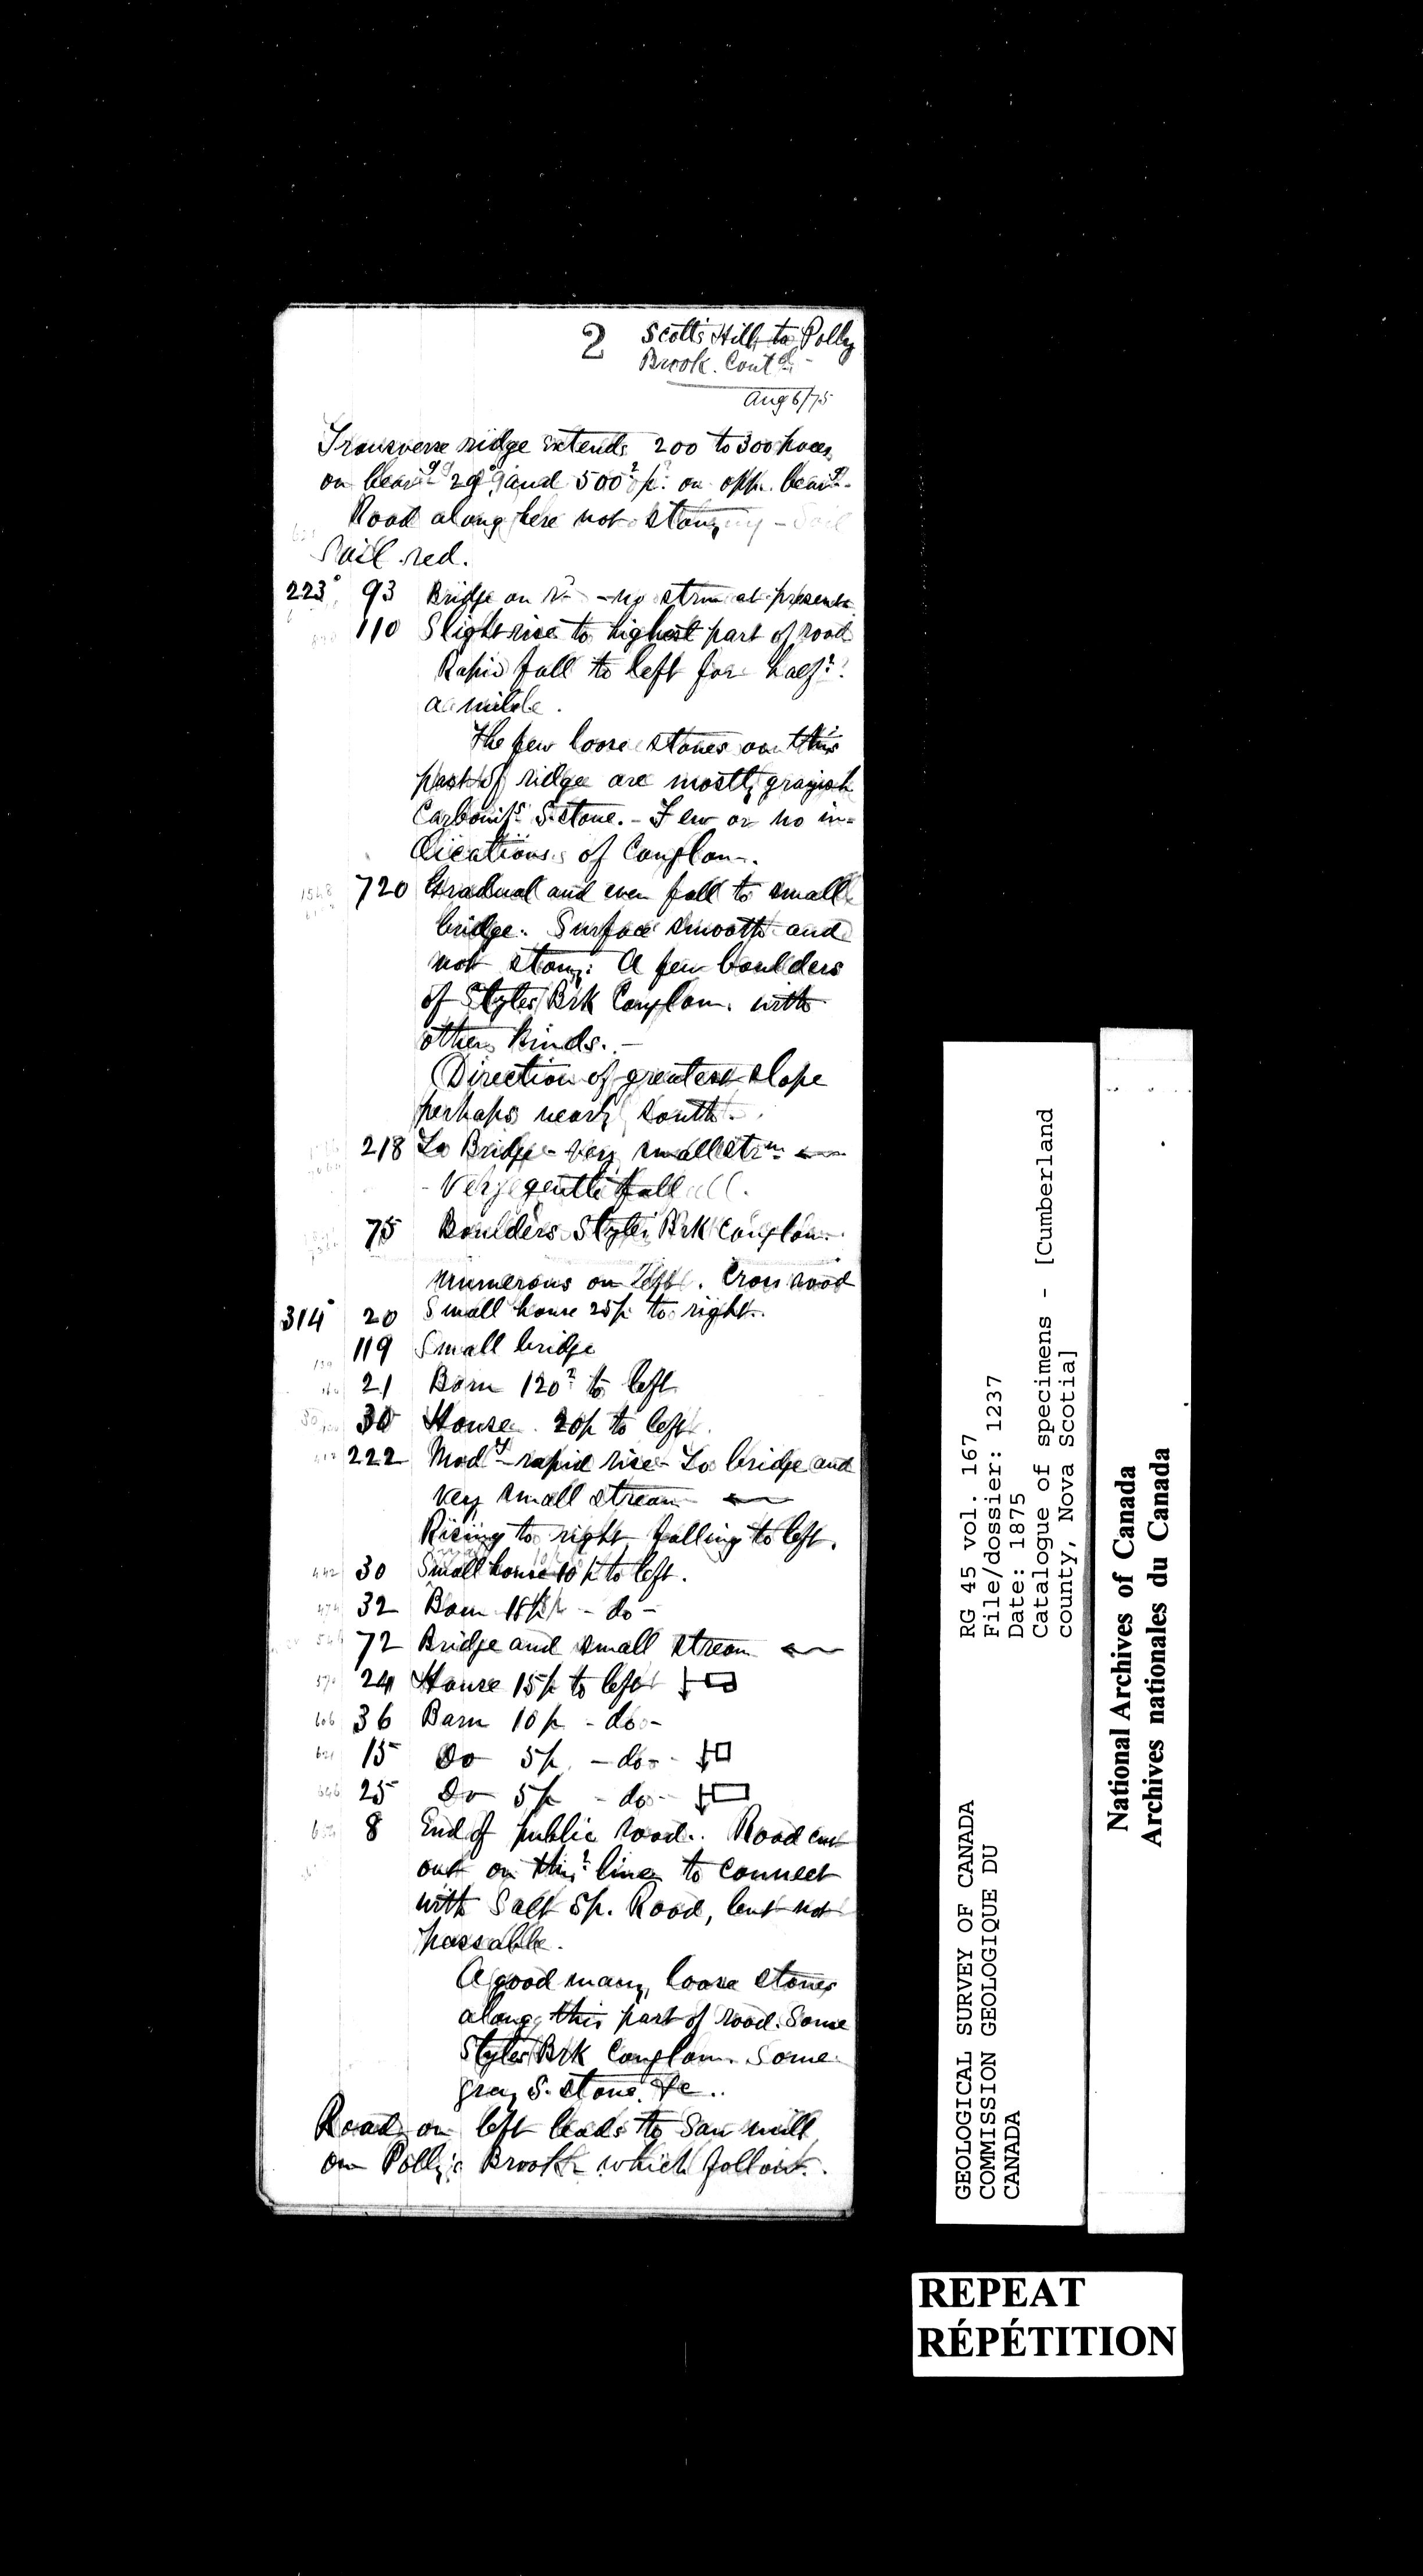 2 Scotts Hill to Polly
Brook. Contd.
Aug 6/75
Transverse ridge extends 200 to 300 paces
on bearg 29° and 500? p. on opp. bearg.
Road along here not stony -
Soil red.
223° 93 Bridge on rd - no strm at present
110 Slight rise to highest part of road
Rapid fall to left for half?
a mile.
The few loose stones on this
part of ridge are mostly grayish
Carbonifs. S.stone. - Few or no in=
dications of Conglom.
720 Gradual and even fall to small
bridge. Surface smooth and
not stony. A few boulders
of Styles Brk Conglom. with
other kinds. -
Direction of greatest slope
perhaps nearly south.
218 To Bridge - very small strm. ←
Very gentle fall
75 Boulders Styles Brk Conglom.
numerous on left. Cross road
314° 20 Small house 25 p. to right.
119 Small bridge
21 Barn 120? to left
30 House 20 p to left.
222 Mody. rapid rise - To bridge and
very small stream ←
Rising to right, falling to left.
442 30 Small house 10 p to left.
474 32 Barn 15 p - do -
72 Bridge and small stream ←
24 House 15 p to left
606 36 Barn 10 p. - do -
621 15 Do 5 p. - do -
646 25 Do 5 p - do -
8 End of public road. Road cut
out on this? line to connect
with Salt Sp. Road, but not
passable.
A good many loose stones
along this part of road. Some
Styles Brk Conglom. Some
gray S. stone &c.
Road on left leads to Saw mill
on Polly's Brook which follow.
GEOLOGICAL SURVEY OF CANADA
COMMISSION GEOLOGIQUE DU
CANADA
RG 45 vol. 167
File/dossier: 1237
Date: 1875
Catalogue of specimens - [Cumberland
county, Nova Scotia]
National Archives of Canada
Archives nationales du Canada
REPEAT
RÉPÉTITION